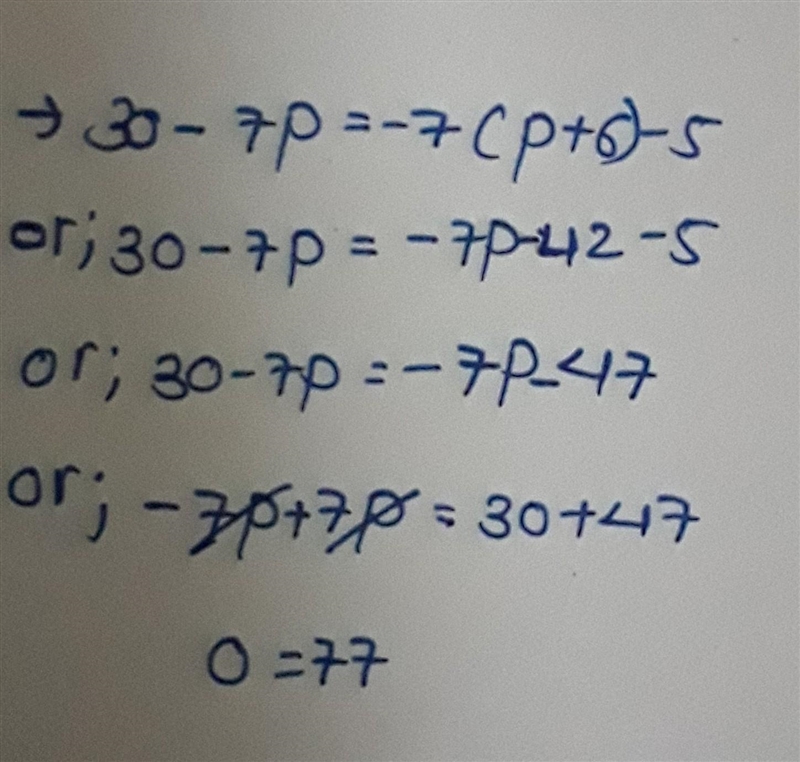 → 30 - 7p = -7(p+6)-5
or; 30 - 7p = -7p-42 -5
or; 30-7p = -7p-47
or; -7p+7p = 30+47
0 = 77